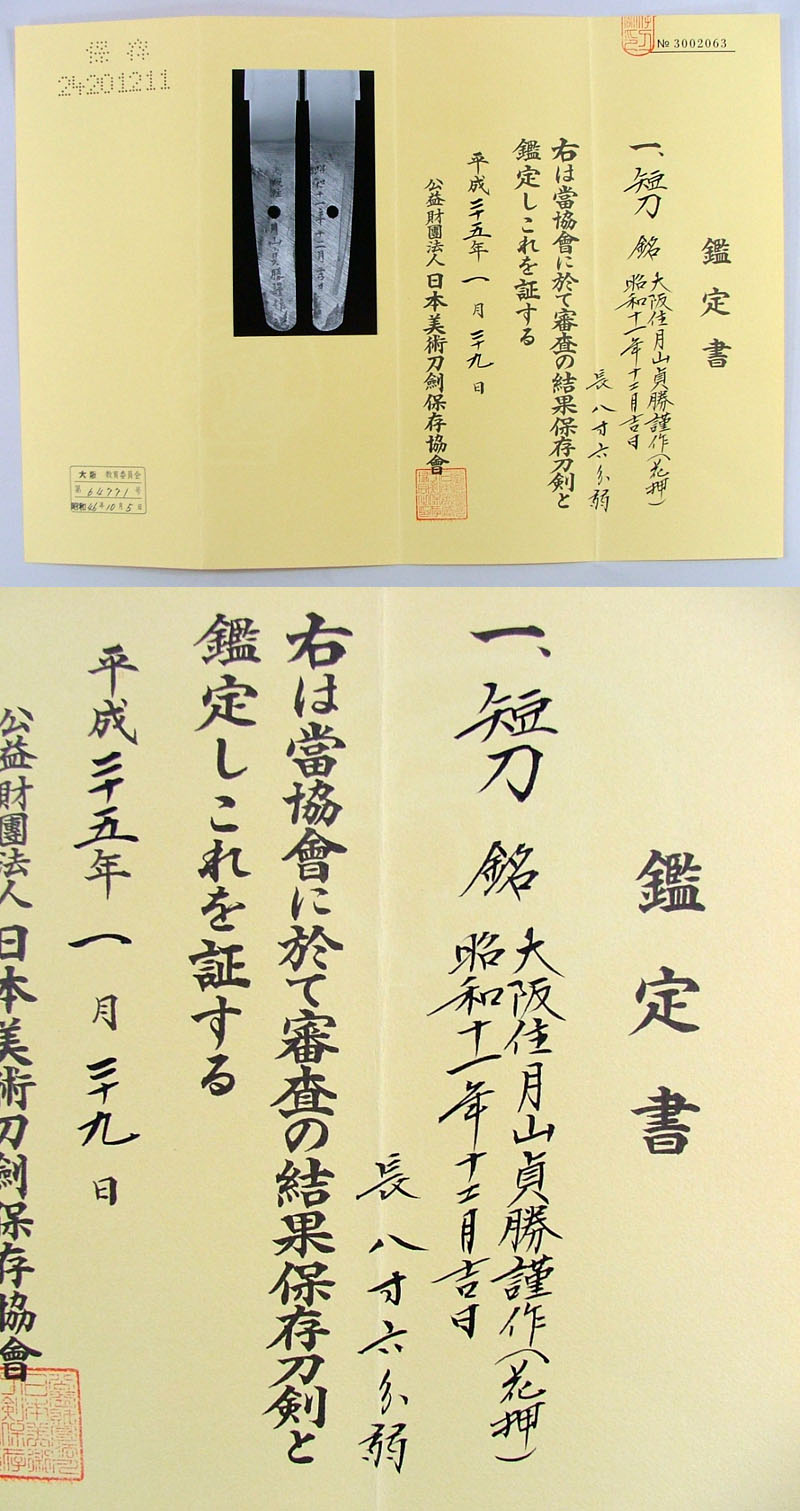 鑑定書
№ 3002063
一、短刀 銘 大阪住月山貞勝謹作(花押)
昭和十一年十二月吉日
長 八寸六分弱
右は當協會に於て審査の結果保存刀剣と
鑑定しこれを証する
平成二十五年一月二十九日
公益財團法人日本美術刀劍保存協會
保存
24201211
大阪 教育委員会
第 64771 号
昭和46年10月5日
鑑定書
一、短刀 銘 大阪住月山貞勝謹作(花押)
昭和十一年十二月吉日
長 八寸六分弱
右は當協會に於て審査の結果保存刀剣と
鑑定しこれを証する
平成二十五年一月二十九日
公益財團法人日本美術刀劍保存協會